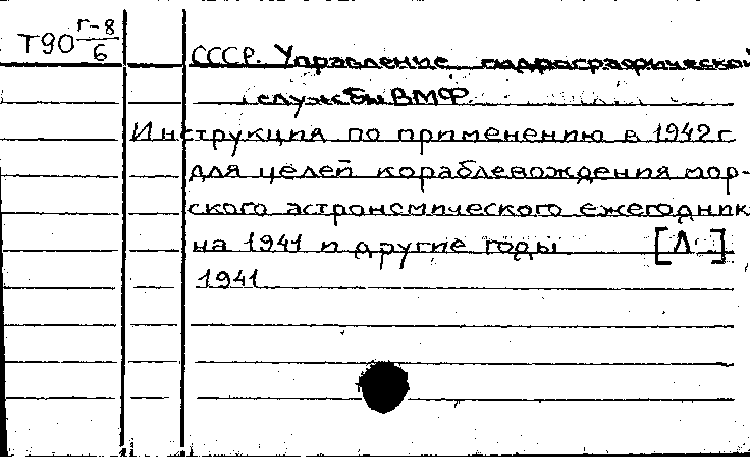 Т90 Г-8/6
СССР. Управление гидрографической
службы ВМФ.
Инструкция по применению в 1942 г
для целей кораблевождения мор-
ского астрономического ежегодник
на 1941 и другие годы [Л.]
1941